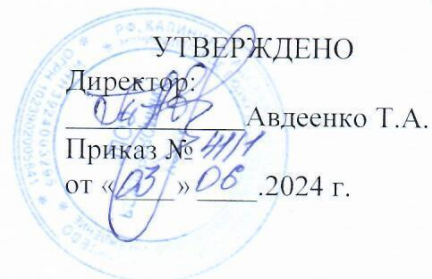 УТВЕРЖДЕНО
Директор:
Авдеенко Т.А.
Приказ № 41/1
от «03» 06.2024 г.